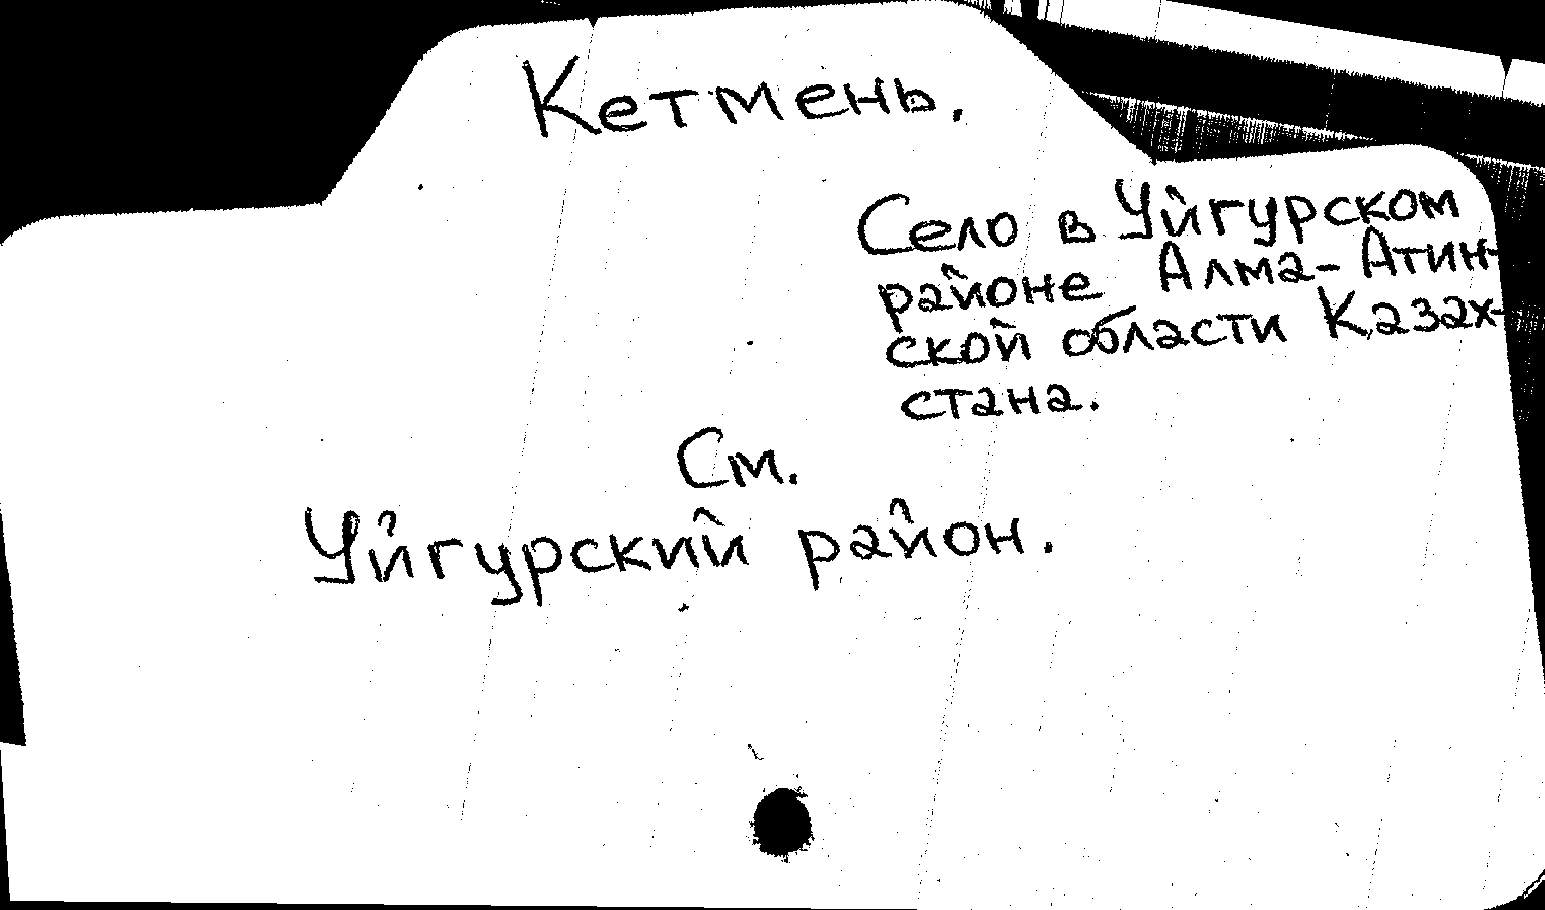 Кетмень.
Село в Уйгурском
районе Алма-Атин-
ской области Казах-
стана.
См.
Уйгурский район.